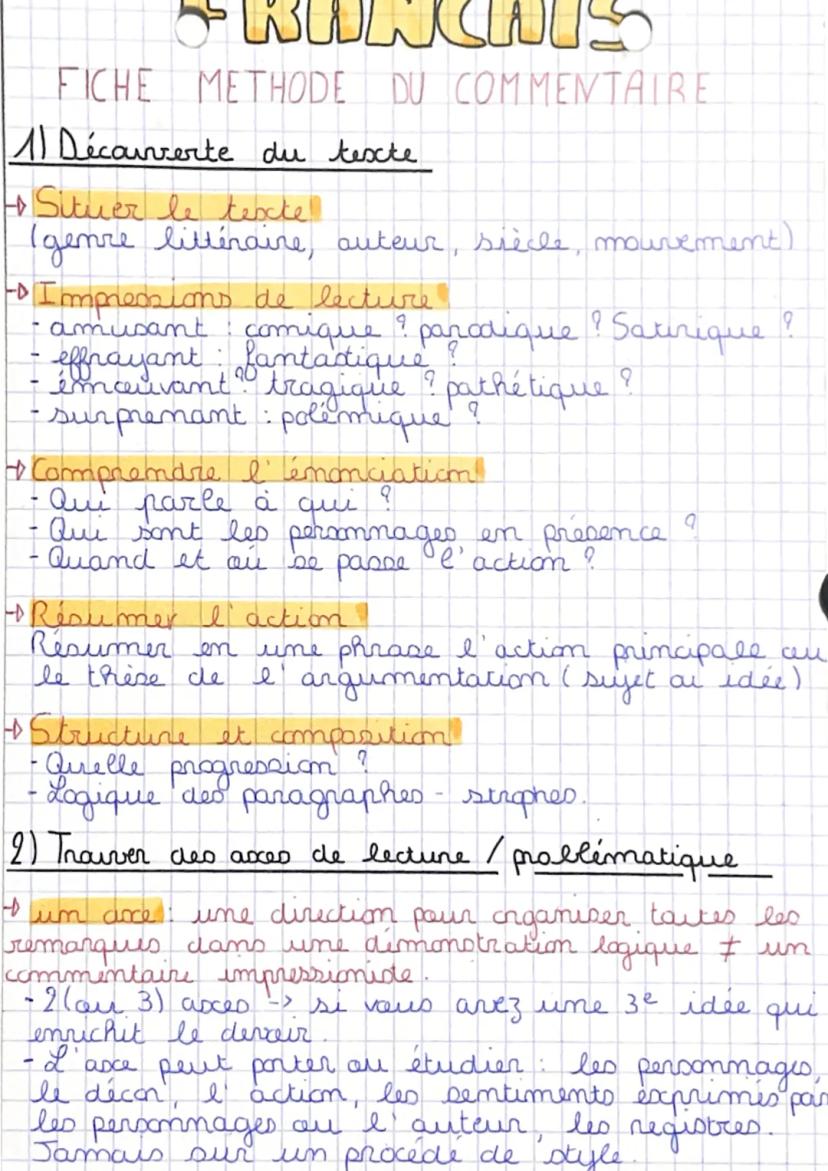 FRANCAIS
FICHE METHODE DU COMMENTAIRE
1) Découverte du texte
→ Situer le texte
(genre littéraire, auteur, siècle, mouvement)
→ Impressions de lecture
- amusant : comique ? parodique ? Satirique ?
- effrayant : fantastique ?
- émouvant ? tragique ? pathétique ?
- surprenant : polémique ?
→ Comprendre l'énonciation
- Qui parle à qui ?
- Qui sont les personnages en présence ?
- Quand et où se passe l'action ?
→ Résumer l'action
Résumer en une phrase l'action principale ou
le thèse de l'argumentation (sujet ou idée)
→ Structure et composition
- Quelle progression ?
- Logique des paragraphes - strophes.
2) Trouver des axes de lecture / problématique
→ un axe : une direction pour organiser toutes les
remarques dans une démonstration logique ≠ un
commentaire impressioniste.
- 2 (ou 3) axes -> si vous avez une 3e idée qui
enrichit le devoir.
- L'axe peut porter ou étudier : les personnages,
le décor, l'action, les sentiments exprimés par
les personnages ou l'auteur, les registres.
Jamais sur un procédé de style.